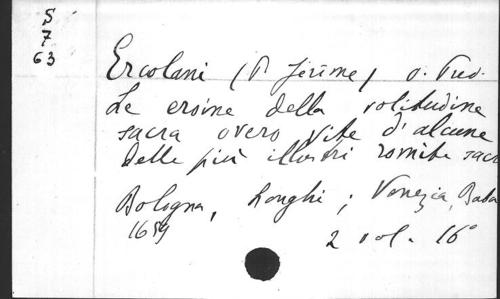 S
7
63
Ercolani (P. Jérôme) o. Pred.
Le eroine della solitudine
sacra overo vite d'alcune
delle più illustri romite sacr
Bologna, Longhi; Venezia, Baba
1659
2 vol. 16°